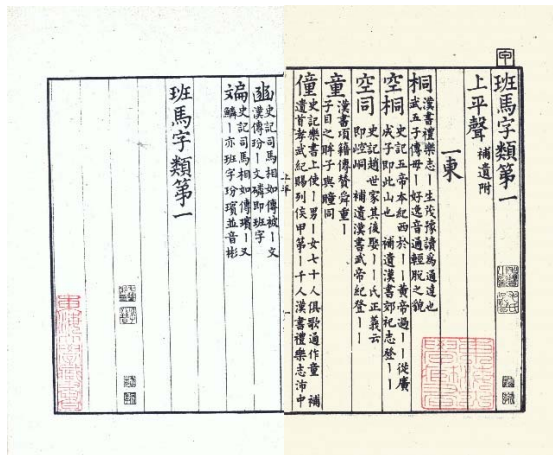 班馬字類第一
上平聲 補遺附
一東
桐 漢書禮樂志丨生茂豫讀為通達也
武五子傳毋丨好逸音通輕脫之貌
空桐 史記五帝本紀西於丨丨黃帝過丨丨從廣
成子即此山也 補遺漢書郊祀志登丨丨
空同 史記趙世家其後娶丨丨氏正義云
即崆峒 補遺漢書武帝紀登丨丨
童 漢書項籍傳贊舜重丨
子目之眸子與瞳同
僮 史記樂書上使丨男丨女七十人俱歌通作童 補
遺首孝武紀賜列侯甲第丨千人漢書禮樂志沛中
上平
史記司馬相如傳被丨文
漢傳玢丨文磷即班字
斒 史記司馬相如傳璸丨文
鱗丨亦班字玢璸並音彬
班馬字類第一